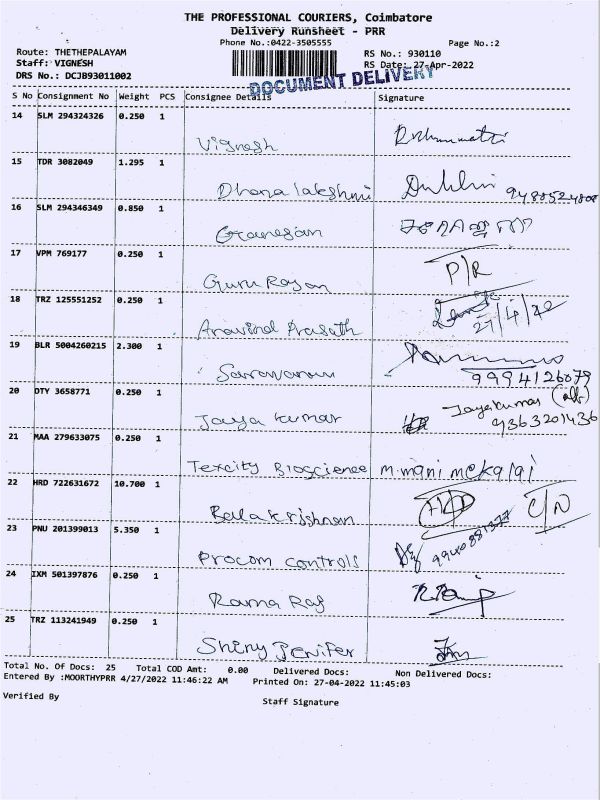 THE PROFESSIONAL COURIERS, Coimbatore
Delivery Runsheet - PRR
Phone No.:0422-3505555 Page No.:2
Route: THETHEPALAYAM RS No.: 930110
Staff: VIGNESH RS Date: 27-Apr-2022
DRS No.: DCJB93011002
DOCUMENT DELIVERY
S No Consignment No Weight PCS Consignee Details Signature
14 SLM 294324326 0.250 1
Vignesh
15 TDR 3082049 1.295 1
Dhana lakshmi
16 SLM 294346349 0.850 1
Ganesan
17 VPM 769177 0.250 1
P/R
Guru Rajan
18 TRZ 125551252 0.250 1
Aravind Prasath 27/4/22
19 BLR 5004260215 2.300 1
Saravanan 9994126079
20 DTY 3658771 0.250 1
Jaya kumar Jayakumar 9363201436
21 MAA 279633075 0.250 1
Texcity Bioscience m.mani mekalai
22 HRD 722631672 10.700 1
Balakrishnan C/N
23 PNU 201399013 5.350 1
Procom controls
24 IXM 501397876 0.250 1
Rama Raj
25 TRZ 113241949 0.250 1
Shiny Jenifer
Total No. Of Docs: 25 Total COD Amt: 0.00 Delivered Docs: Non Delivered Docs:
Entered By :MOORTHYPRR 4/27/2022 11:46:22 AM Printed On: 27-04-2022 11:45:03
Verified By
Staff Signature